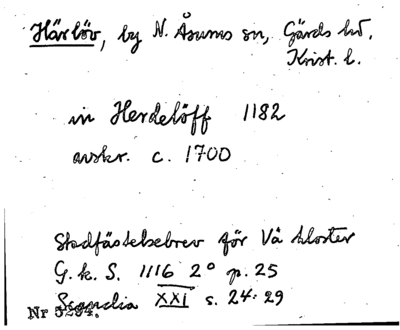 Härlöv, by N. Åsums sn, Gärds hd.
Krist. l.
in Herdelöff 1182
avskr. c. 1700
Stadfästelsebrev för Vä kloster
G. k. S. 1116 2° p. 25
Scandia XXI s. 24. 29
Nr 5294.